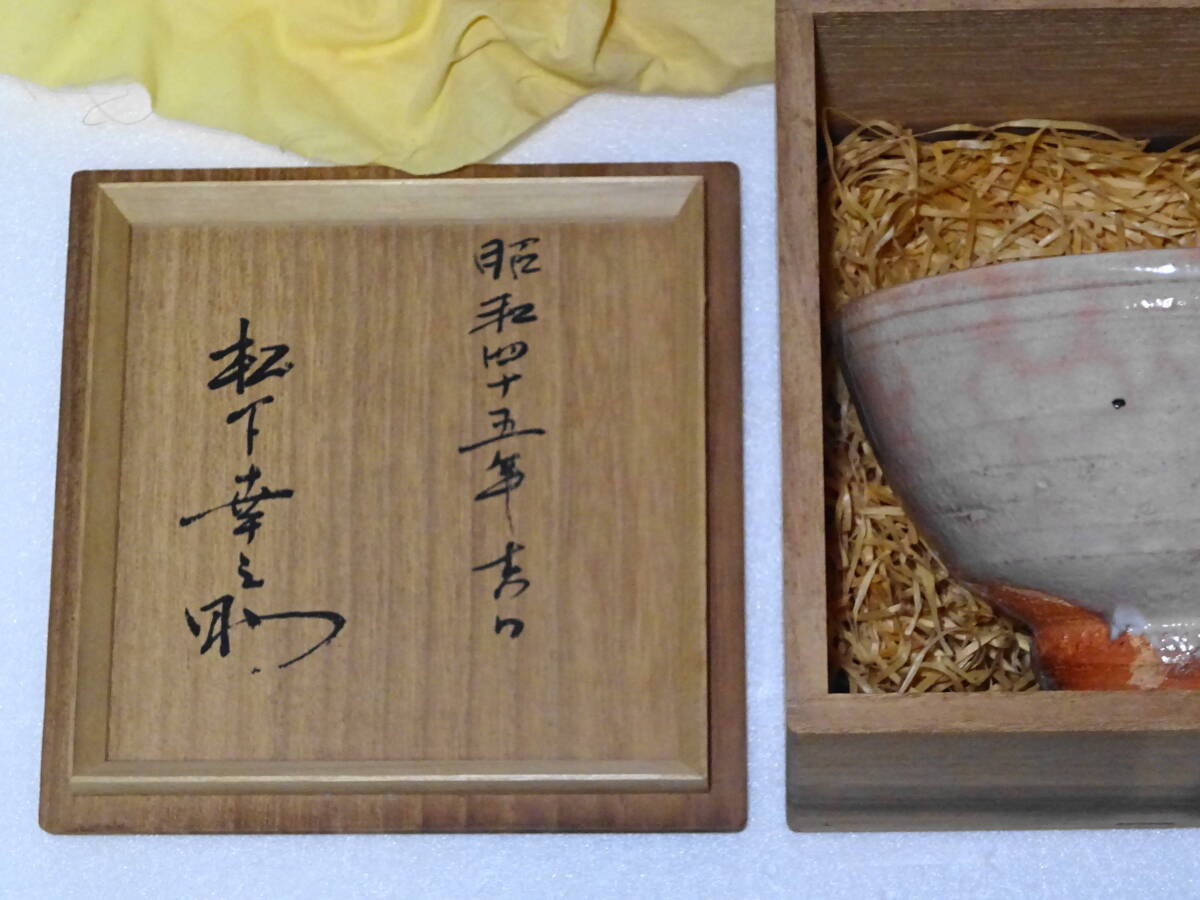 昭和四十五年吉日
松下幸之助